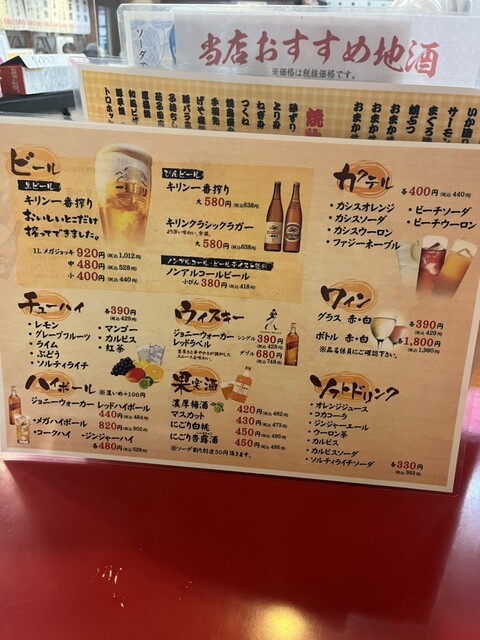 当店おすすめ地酒
※価格は税抜価格です。
ビール
生ビール
キリン一番搾り
おいしいとこだけ
搾ってできました。
1L メガジョッキ 920円(税込1,012円)
中 480円(税込528円)
小 400円(税込440円)
びんビール
キリン一番搾り
大 580円(税込638円)
キリンクラシックラガー
大 580円(税込638円)
ノンアルコール・ビールテイスト飲料
ノンアルコールビール
小びん 380円(税込418円)
カクテル
各400円(税込440円)
・カシスオレンジ
・カシスソーダ
・カシスウーロン
・ファジーネーブル
・ピーチソーダ
・ピーチウーロン
チューハイ
各390円
(税込429円)
・レモン
・グレープフルーツ
・ライム
・ぶどう
・ソルティライチ
・マンゴー
・カルピス
・紅茶
※濃いめ+100円
ウィスキー
ジョニーウォーカー
レッドラベル
シングル 390円
(税込429円)
ダブル 680円
(税込748円)
ワイン
グラス 赤・白 各390円
(税込429円)
ボトル 赤・白 各1,800円
(税込1,980円)
※品名係員にご確認下さい。
ハイボール
ジョニーウォーカー レッドハイボール
440円(税込484円)
・メガハイボール 820円(税込902円)
・コークハイ ・ジンジャーハイ
各480円(税込528円)
果実酒
濃厚梅酒 420円(税込462円)
マスカット 430円(税込473円)
にごり白桃 450円(税込495円)
にごり杏露酒 450円(税込495円)
※ソーダ割り別途50円頂きます。
ソフトドリンク
・オレンジジュース
・コカコーラ
・ジンジャーエール
・ウーロン茶
・カルピス
・カルピスソーダ
・ソルティライチソーダ
各330円
(税込363円)